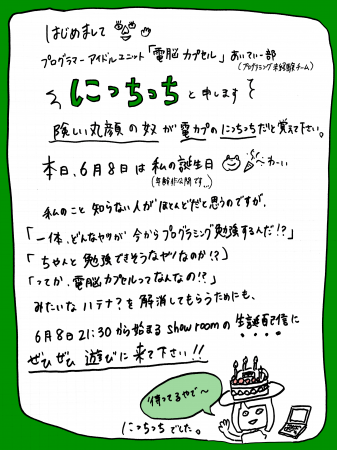 はじめまして
プログラマーアイドルユニット「電脳カプセル」あいてぃー部
(プログラミング未経験チーム)
にっちっち と申します
険しい丸顔の奴が電カプのにっちっちだと覚えて下さい。
本日、6月8日は私の誕生日 わーい
(年齢非公開です...)
私のこと知らない人がほとんどだと思うのですが、
「一体、どんなヤツが今からプログラミング勉強するんだ!?」
「ちゃんと勉強できそうなヤツなのか!?」
「ってか、電脳カプセルってなんなの!?」
みたいなハテナ?を解消してもらうためにも、
6月8日21:30から始まるshowroomの生誕配信に
ぜひぜひ遊びに来て下さい!!
待ってるやで〜
にっちっちでした。